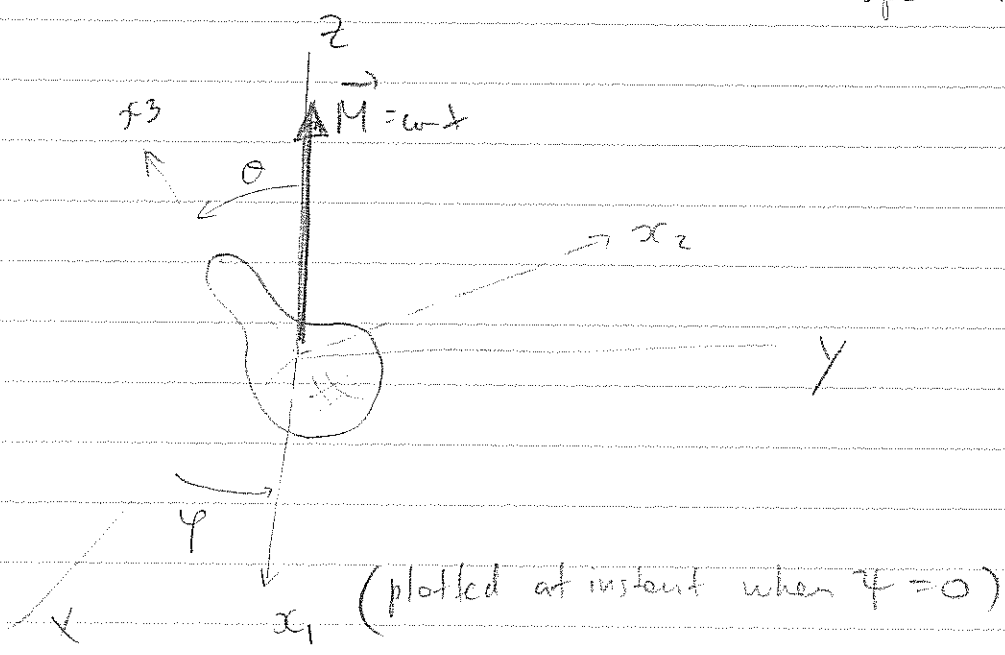 Z
M⃗ = const
x3
θ
x2
Y
φ
X
x1 (plotted at instant when ψ = 0)